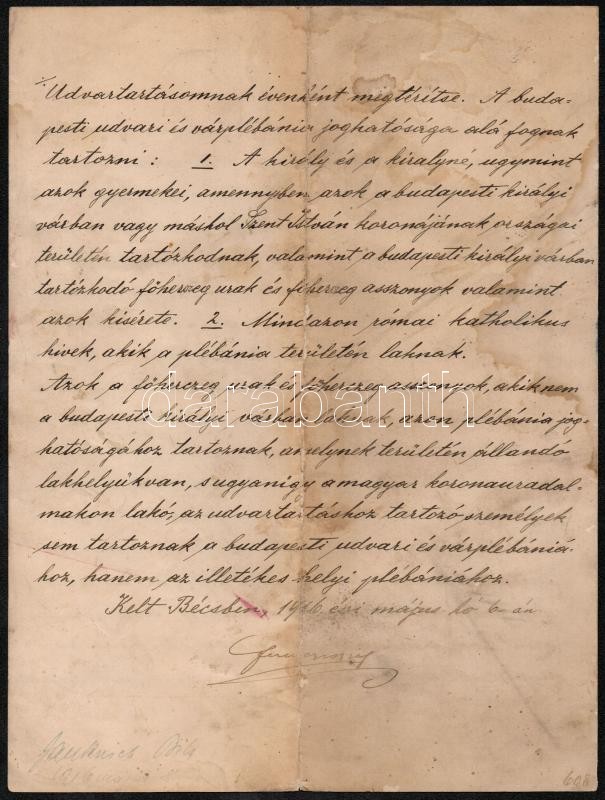 Udvartartásomnak évenként megtérítse. A buda-
pesti udvari és várplébánia joghatósága alá fognak
tartozni: 1. A király és a királyné, ugymint
azok gyermekei, amennyben azok a budapesti királyi
várban vagy máshol Szent István koronájának országai
területén tartózkodnak, valamint a budapesti királyi várban
tartózkodó főherczeg urak és főherczeg asszonyok valamint
azok kisérete. 2. Mindazon római katholikus
hivek, akik a plébánia területén laknak.
Azok a főherczeg urak és főherczeg asszonyok, akik nem
a budapesti királyi várban laknak azon plébánia jog-
hatóságához tartoznak, amelynek területén állandó
lakhelyük van, s ugyanigy a magyar koronauradal-
makon lakó, az udvartartáshoz tartozó személyek
sem tartoznak a budapesti udvari és várplébániá-
hoz, hanem az illetékes helyi plébániához.
Kelt Bécsben, 1916 évi május hó 6-án
darabanth
608